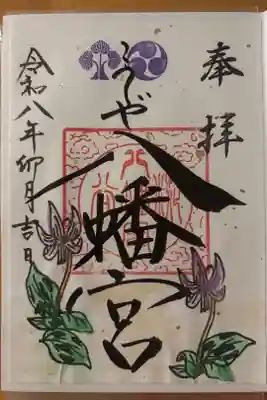 奉拝
うぶや
八幡宮
令和八年卯月吉日